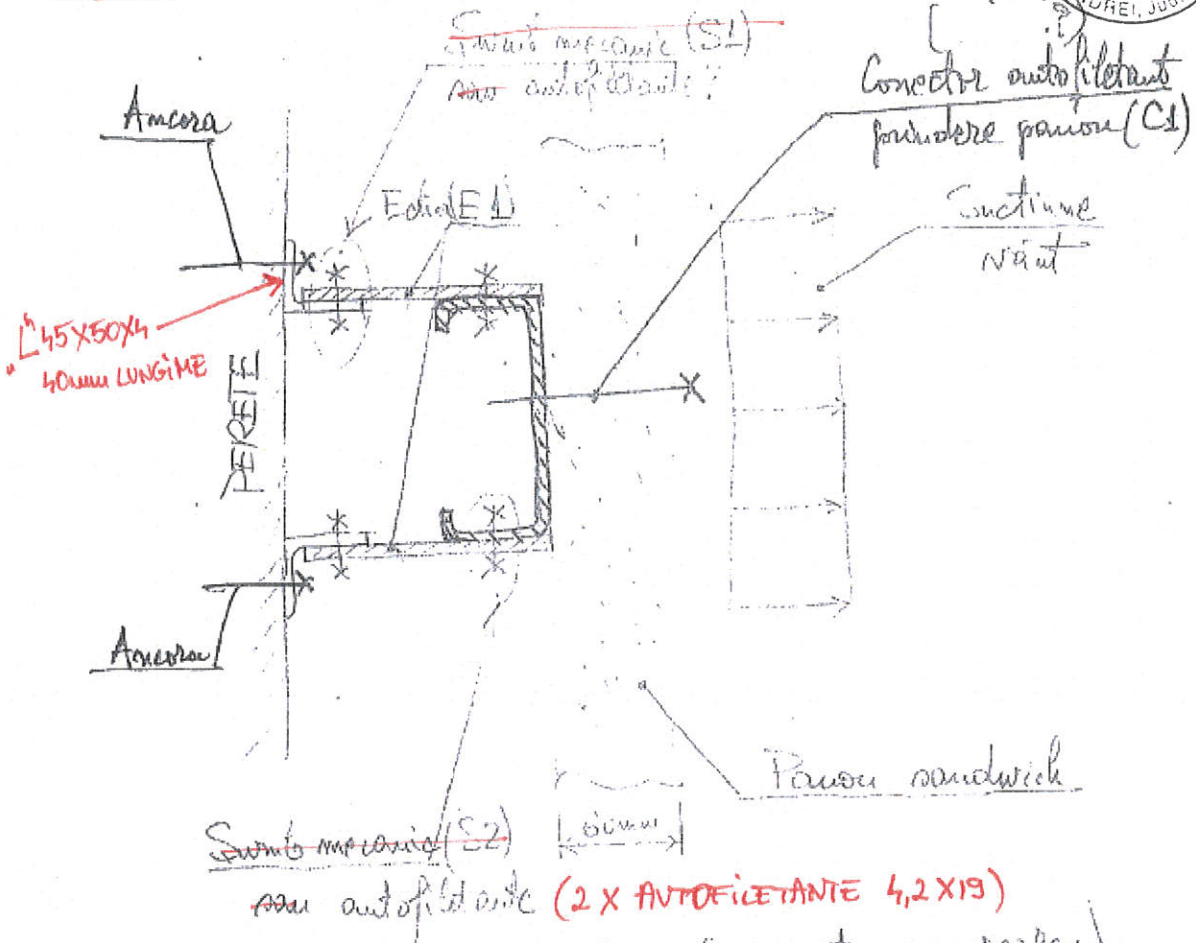 Șurub mecanic (S1)
sau autofiletante
DREI, JUD.
Conector autofiletant
prindere panou (C1)
Ancora
Eclisă (E1)
Sucțiune
vânt
L 45X50X4
40mm LUNGIME
PERETE
Ancora
Panou sandwich
60mm
Șurub mecanic (S2)
sau autofiletante (2 X AUTOFILETANTE 4,2X19)